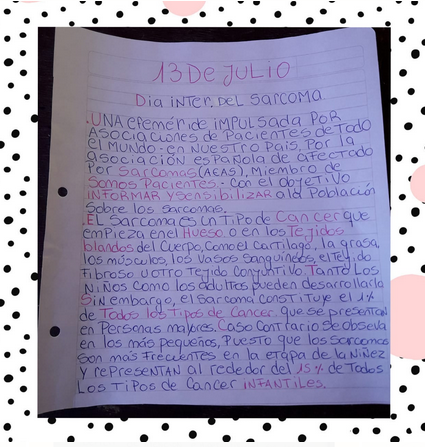 13 De JULIO
Dia inTer. DeL Sarcoma
.UNA efeméride iMPULsada POR
Asociaciones de Pacientes de Todo
eL MUNDO. en NUesTro Pais, Por la
asociación esPañola de afectado
Por Sarcomas (AEAS), Miembro de
Somos Pacientes. Con el OBJeTIVO
INFORMAR YSENSiBiLIZAR ala POBLación
Sobre los Sarcomas.
.EL Sarcoma es UnTiPO de Cancer que
emPieza enel Hueso o en los Tejidos
blandos del Cuerpo, Como el CarTilago, la grasa,
los músculos, los Vasos Sanguíneos, elTejido
Fibroso UOTro Tejido ConjunTiVo. TanTo Los
Niños Como los adulTos pueden desarrollarla
Sin embargo, el Sarcoma ConsTiTuye el 1%
de Todos los Tipos de Cancer. que se presenTan
en Personas mayores, Caso ConTrario se observa
en los más pequeños, PuesTo que los Sarcomas
Son más Frecuentes en la eTapa de la Niñez
y rePresenTAN al rededor del 15% de Todos
Los TiPos de Cancer iNFANTiLes.